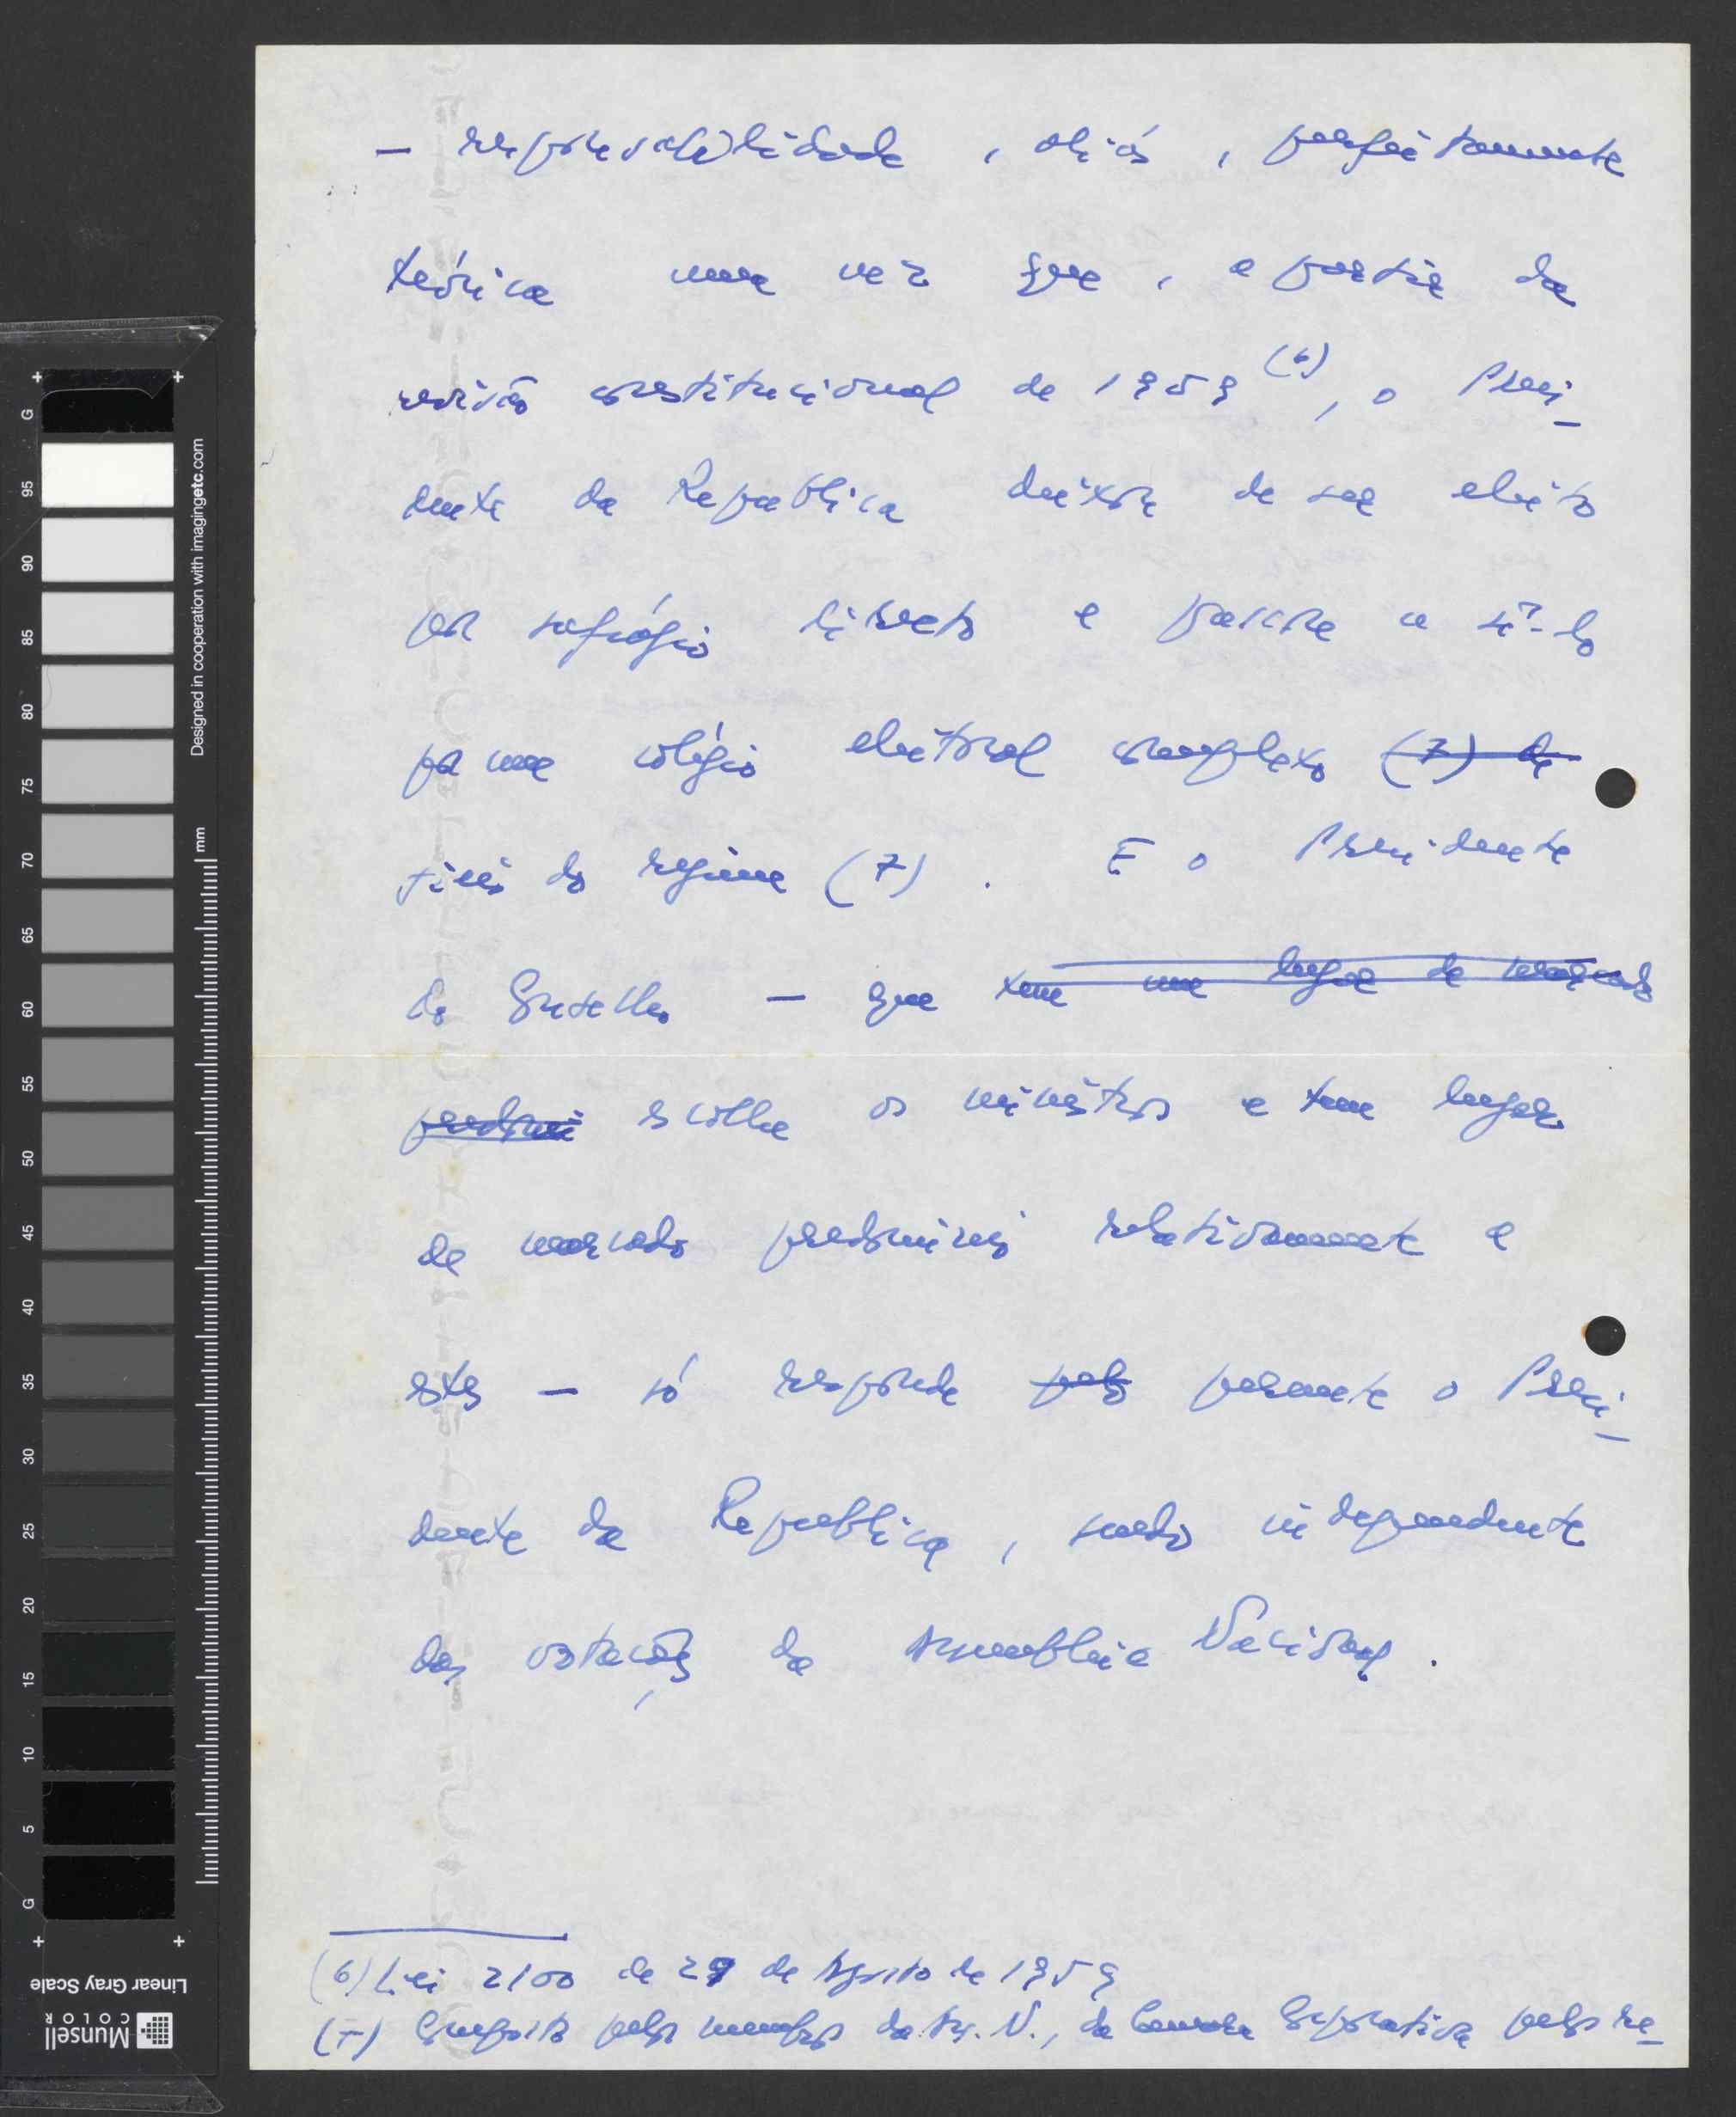 — responsabilidade, aliás, perfeitamente
teórica uma vez que, a partir da
revisão constitucional de 1959 (6), o Presi-
dente da República deixou de ser eleito
por sufrágio directo e passou a sê-lo
por um colégio eleitoral complexo (7) de
fiéis do regime (7). E o Presidente
do Conselho — que tem um lugar de marcado
predomí escolhe os ministros e tem lugar
de marcado predomínio relativamente a
estes — só responde pelo perante o Presi-
dente da República, sendo independente
das votações da Assembleia Nacional.
(6) Lei 2100 de 29 de Agosto de 1959
(7) Composto pelos membros da As. N., da Câmara Corporativa pelos re-
Designed in cooperation with imagingetc.com
mm
G 95 90 85 80 75 70 65 60 55 50 45 40 35 30 25 20 15 10 5 G
Linear Gray Scale
Munsell
COLOR